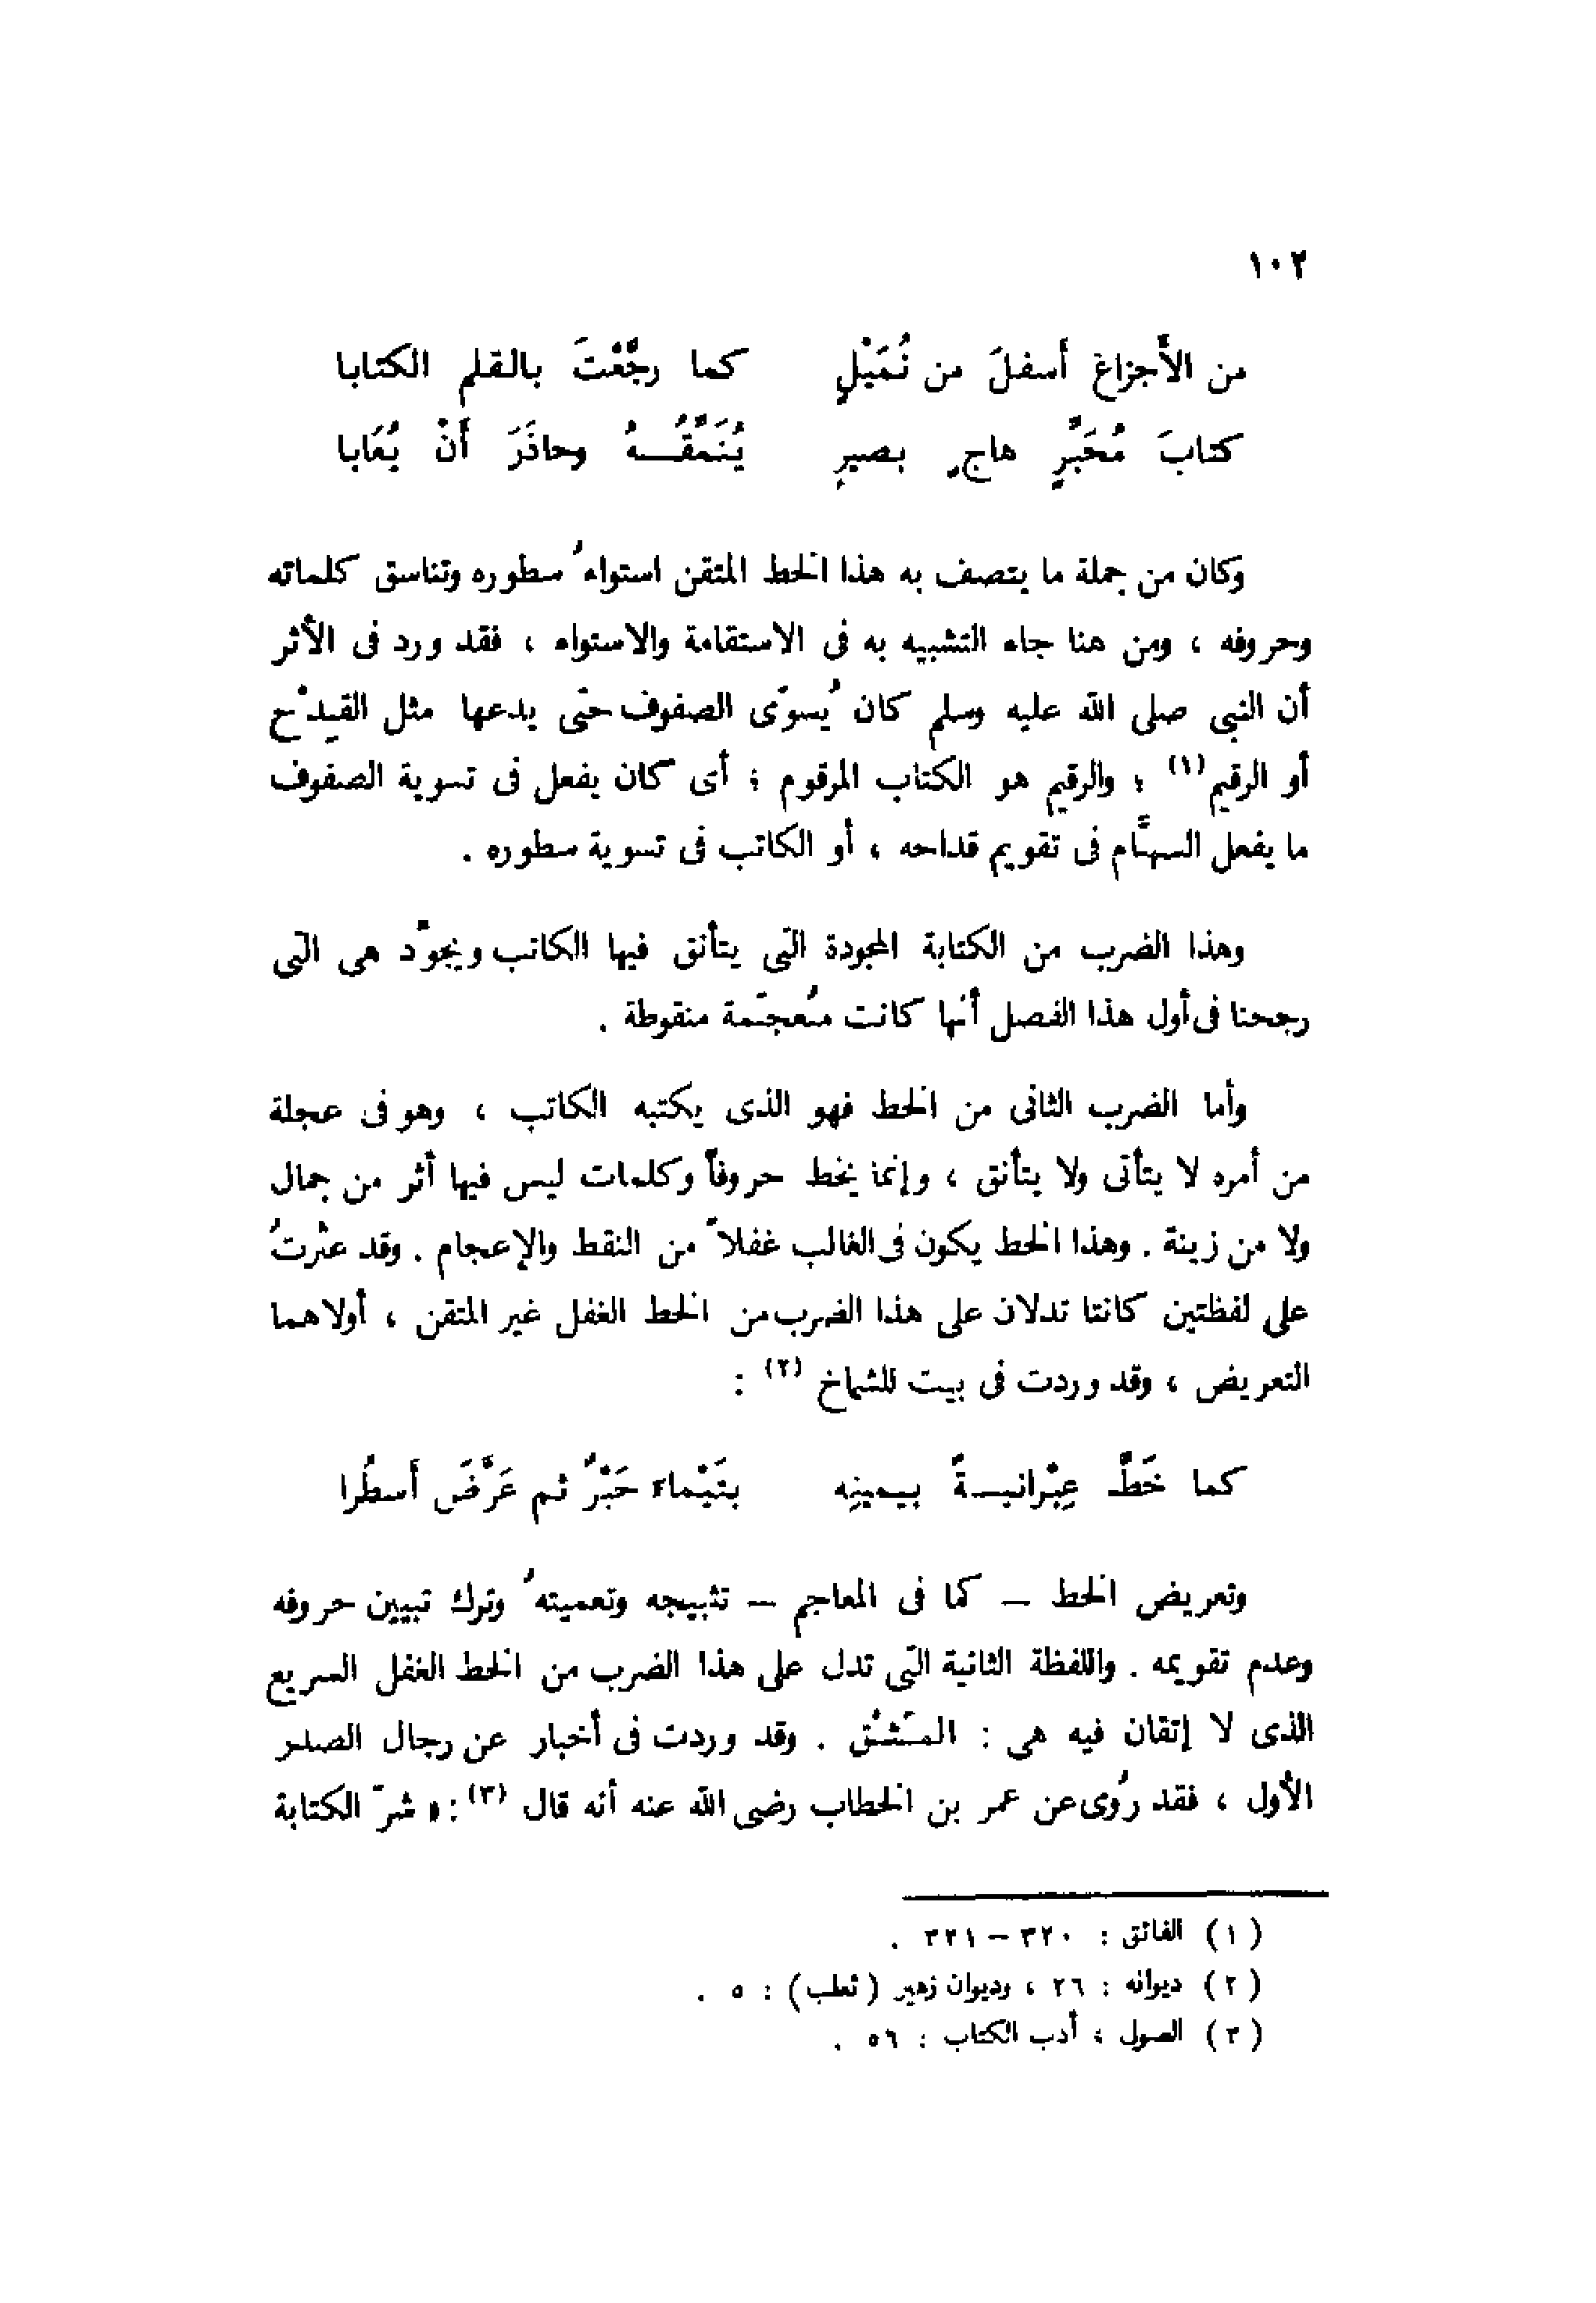 ١٠٢
من الأَجزاع أَسفلَ من نُمَيْلٍ كما رجَّعْتَ بالقلم الكتابا
كتابَ مُحَبِّرٍ هاجٍ بصيرِ يُنَمِّقُـــهُ وحاذَرَ أَنْ يُعَابا
وكان من جملة ما يتصف به هذا الخط المتقن استواءُ سطوره وتناسق كلماته
وحروفه ، ومن هنا جاء التشبيه به فى الاستقامة والاستواء ، فقد ورد فى الأثر
أن النبى صلى الله عليه وسلم كان يُسوّى الصفوف حتّى يدعها مثل القِدْح
أو الرقيم (١) ؛ والرقيم هو الكتاب المرقوم ؛ أى كان يفعل فى تسوية الصفوف
ما يفعل السهَّام فى تقويم قداحه ، أو الكاتب فى تسوية سطوره .
وهذا الضرب من الكتابة المجودة التى يتأنق فيها الكاتب ويجوّد هى التى
رجحنا فى أول هذا الفصل أنها كانت مُعجَمة منقوطة .
وأما الضرب الثانى من الخط فهو الذى يكتبه الكاتب ، وهو فى عجلة
من أمره لا يتأنى ولا يتأنق ، وإنما يخط حروفاً وكلمات ليس فيها أثر من جمال
ولا من زينة . وهذا الخط يكون فى الغالب غفلاً من النقط والإعجام . وقد عثرتُ
على لفظتين كانتا تدلان على هذا الضرب من الخط الغفل غير المتقن ، أولاهما
التعريض ، وقد وردت فى بيت للشماخ (٢) :
كما خَطَّ عِبْرانيـــةً بيـمينِه بتَيْماءَ حَبْرٌ ثم عَرَّضَ أَسطُرا
وتعريض الخط – كما فى المعاجم – تثبيجه وتعميتهُ وترك تبيين حروفه
وعدم تقويمه . واللفظة الثانية التى تدل على هذا الضرب من الخط الغفل السريع
الذى لا إتقان فيه هى : المَشْق . وقد وردت فى أخبار عن رجال الصدر
الأول ، فقد رُوى عن عمر بن الخطاب رضى الله عنه أنه قال (٣) : « شرّ الكتابة
( ١ ) الفائق : ٣٢٠ – ٣٢١ .
( ٢ ) ديوانه : ٢٦ ، وديوان زهير ( ثعلب ) : ٥ .
( ٣ ) الصولى ، أدب الكتاب : ٥٦ .